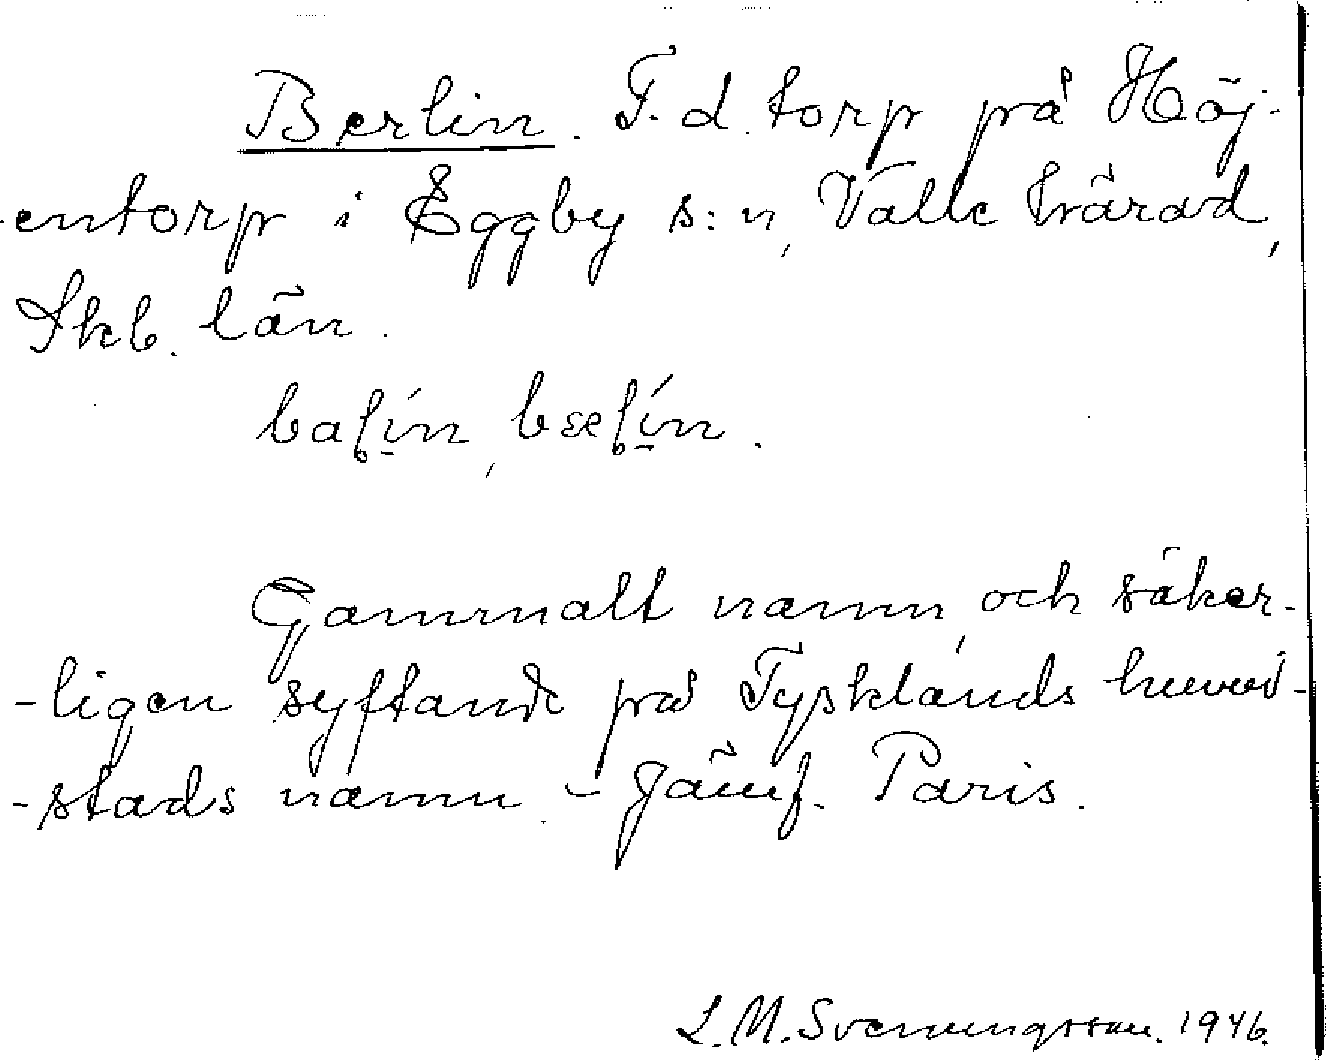 Berlin. F. d. torp på Höj-
-entorp i Eggby s:n, Valle härad,
Skb. län.
Gammalt namn, och säker-
-ligen syftande på Tysklands huvud-
-stads namn. – Jämf. Paris.
L. M. Svenungsson. 1946.